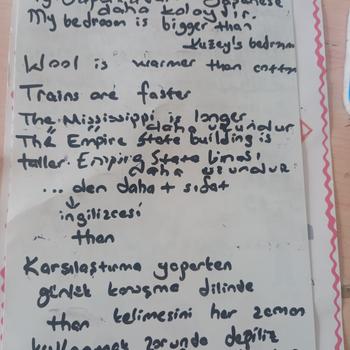 daha kolaydır.
My bedroom is bigger than
Kuzey's bedroom
Wool is warmer than cotton
Trains are faster
The Mississippi is longer
daha uzundur
The Empire State building is
taller. Empire State binası
daha uzundur.
... den daha + sıfat
ingilizcesi
than
Karşılaştırma yaparken
günlük konuşma dilinde
than kelimesini her zaman
kullanmak zorunda değiliz